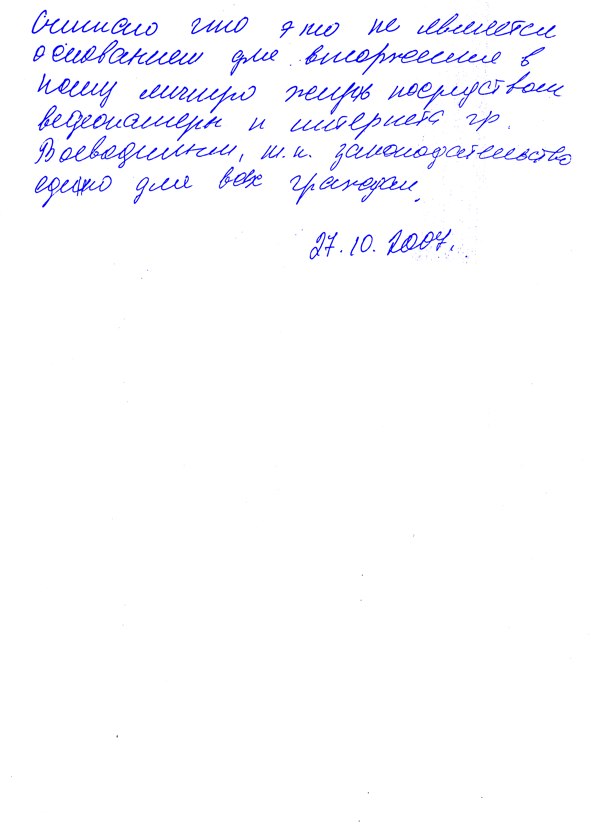 Считаю что это не является
основанием для вторжения в
нашу личную жизнь посредством
ведеокамеры и интернета гр.
Воеводиным, т.к. законодательство
едино для всех граждан.
27.10.2007.